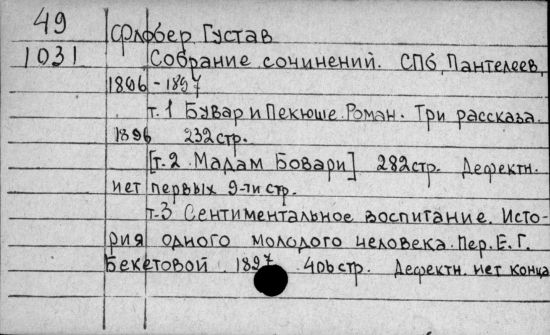 49
1031
Флобер Густав
Собрание сочинений. СПб, Пантелеев,
1896-1897
т.1 Бувар и Пекюше. Роман. Три рассказа.
1896 232 стр.
[т.2 Мадам Бовари] 282 стр. Дефектн.
нет первых 9-ти стр.
т.3 Сентиментальное воспитание. Исто-
рия одного молодого человека. Пер. Е. Г.
Бекетовой. 1897. 406 стр. Дефектн. нет конца